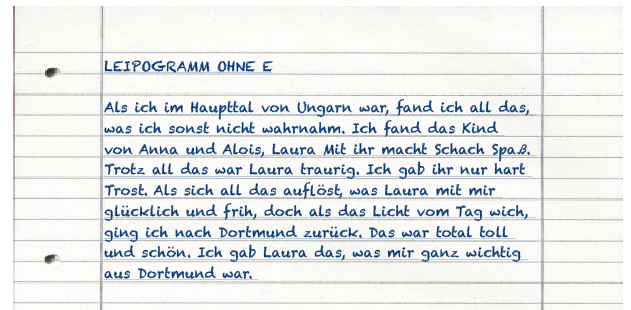 LEIPOGRAMM OHNE E
Als ich im Haupttal von Ungarn war, fand ich all das,
was ich sonst nicht wahrnahm. Ich fand das Kind
von Anna und Alois, Laura Mit ihr macht Schach Spaß.
Trotz all das war Laura traurig. Ich gab ihr nur hart
Trost. Als sich all das auflöst, was Laura mit mir
glücklich und frih, doch als das Licht vom Tag wich,
ging ich nach Dortmund zurück. Das war total toll
und schön. Ich gab Laura das, was mir ganz wichtig
aus Dortmund war.